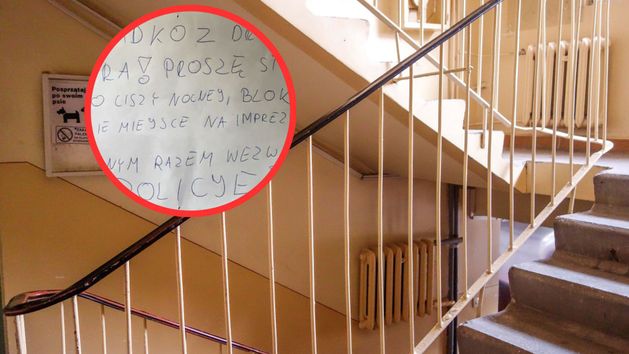 Posprzątaj
po swoim
psie
DKÓZ
RA! PROSZĘ
O CISZY NOCNEJ, BLOK
IE MIEJSCE NA IMPREZ
NYM RAZEM WEZW
POLICYĘ